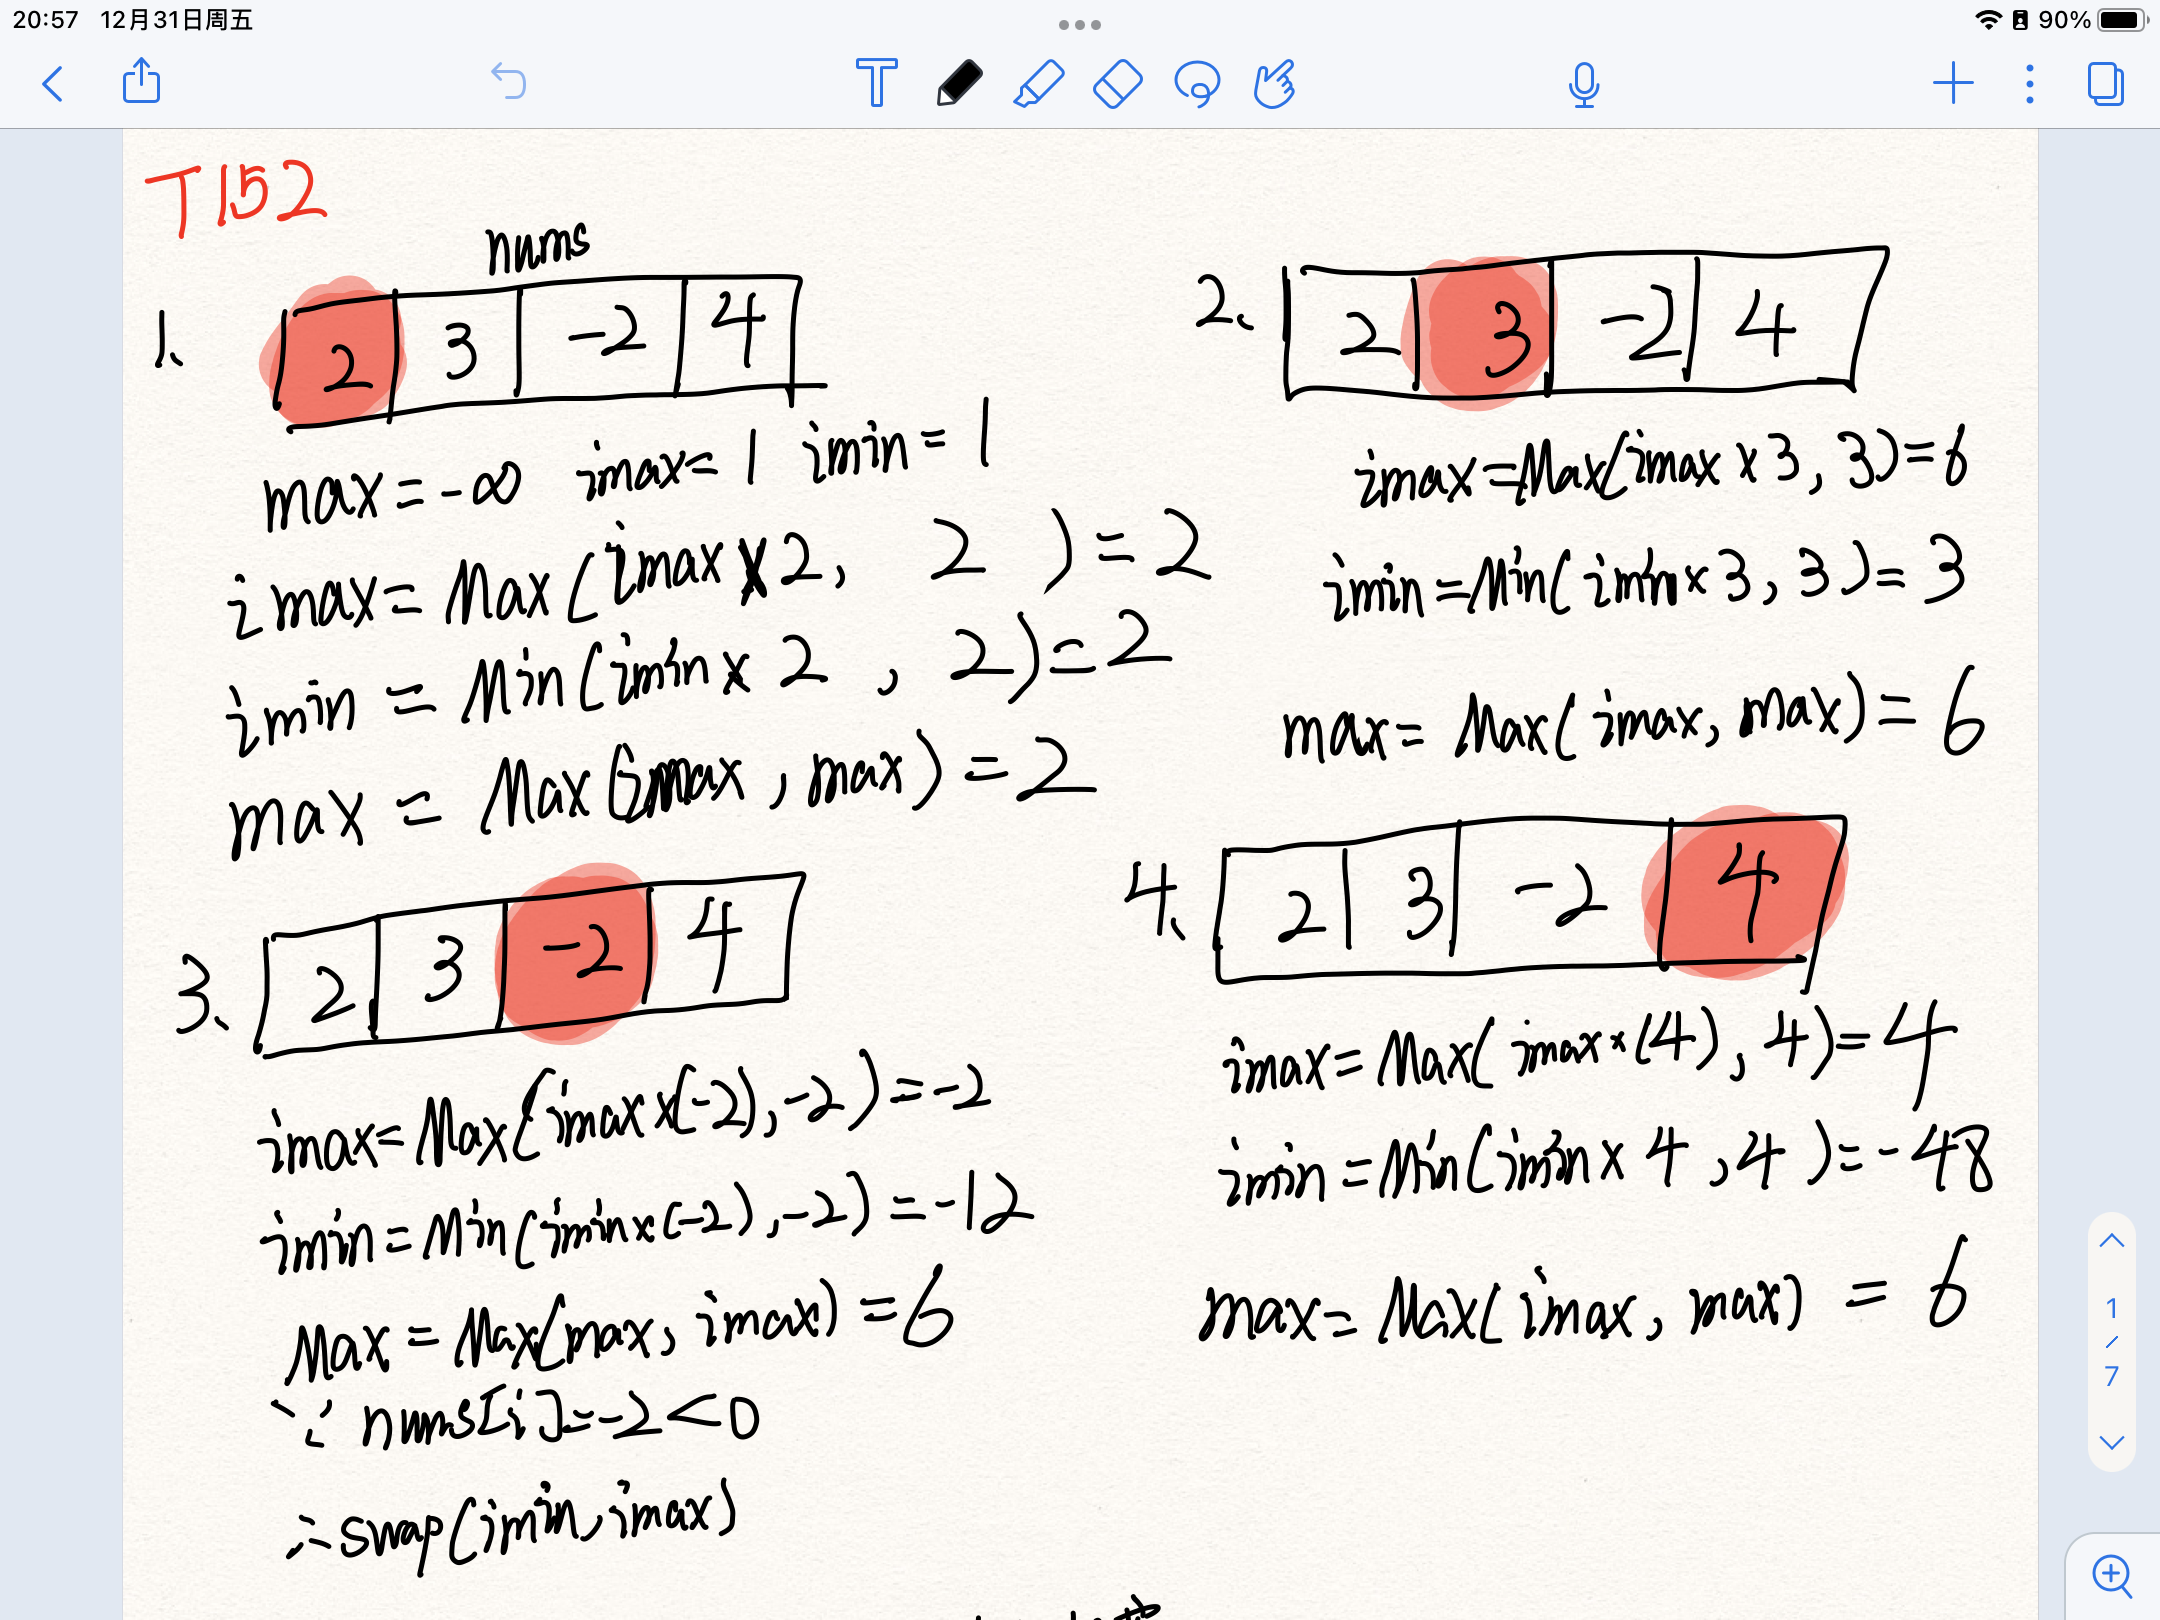 20:57 12月31日周五
90%
T152
nums
1、 2 3 -2 4
max = -∞ imax = 1 imin = 1
imax = Max(imax x 2, 2) = 2
imin = Min(imin x 2, 2) = 2
max = Max(imax, max) = 2
2、 2 3 -2 4
imax = Max(imax x 3, 3) = 6
imin = Min(imin x 3, 3) = 3
max = Max(imax, max) = 6
3、 2 3 -2 4
imax = Max(imax x(-2), -2) = -2
imin = Min(imin x(-2), -2) = -12
Max = Max(max, imax) = 6
∵ nums[i] = -2 < 0
∴ swap(imin, imax)
4、 2 3 -2 4
imax = Max(imax x(4), 4) = 4
imin = Min(imin x 4, 4) = -48
max = Max(imax, max) = 6
1
/
7